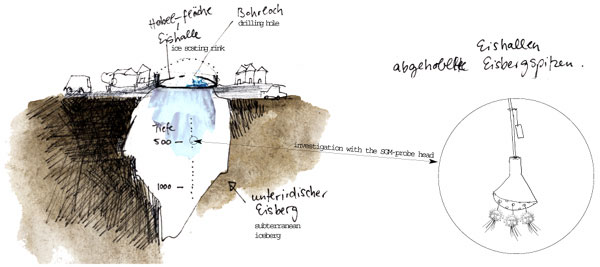 Hobel-fläche
Eishalle
ice scating rink
Bohrloch
drilling hole
Eishallen
abgehobelte Eisbergspitzen.
Tiefe
500 –
investigation with the SGM-probe head
1000 –
unterirdischer
Eisberg
subterranean
iceberg